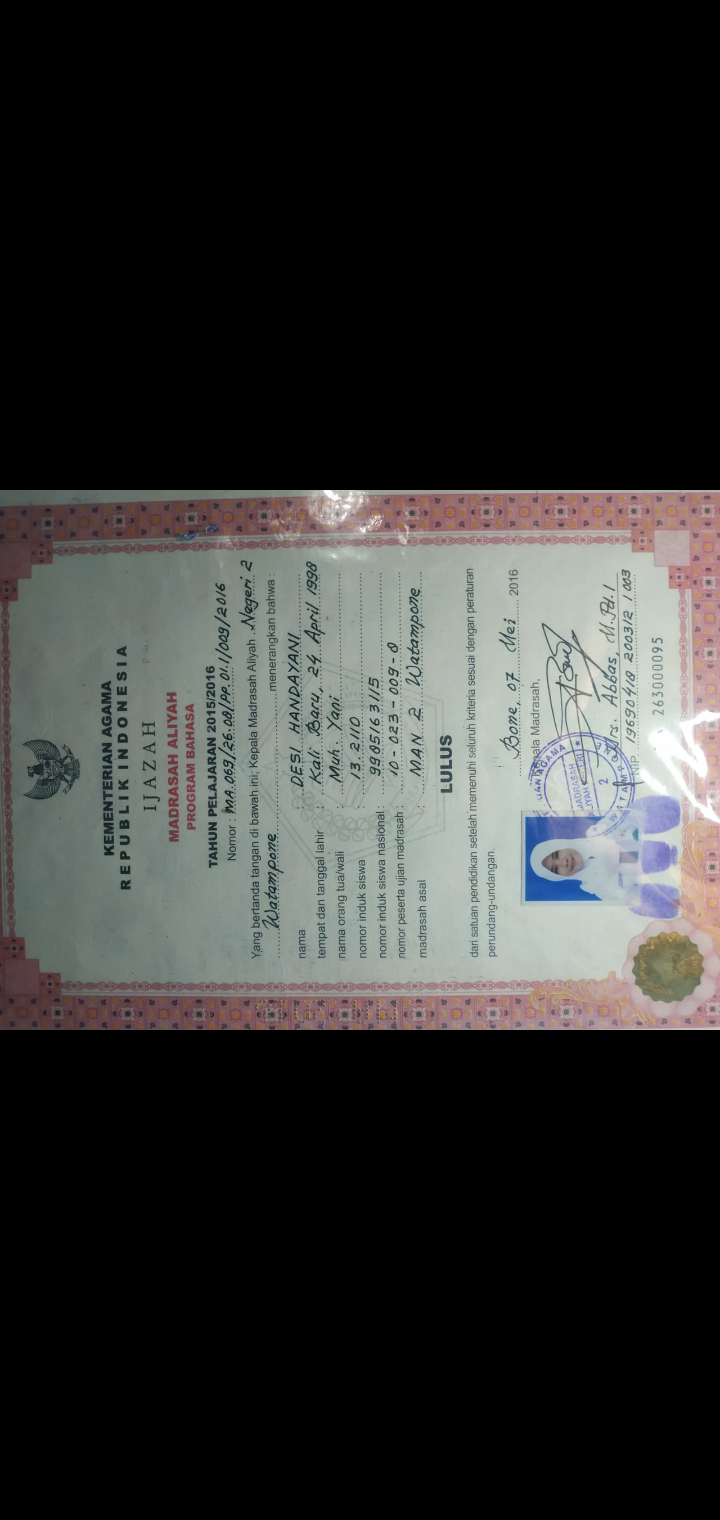 KEMENTERIAN AGAMA
REPUBLIK INDONESIA
IJAZAH
MADRASAH ALIYAH
PROGRAM BAHASA
TAHUN PELAJARAN 2015/2016
Nomor : MA.069/26.08/PP.01.1/009/2016
Yang bertanda tangan di bawah ini, Kepala Madrasah Aliyah Negeri 2
Watampone menerangkan bahwa :
nama : DESI HANDAYANI
tempat dan tanggal lahir : Kali Baru, 24 April 1998
nama orang tua/wali : Muh. Yani
nomor induk siswa : 13.2110
nomor induk siswa nasional : 9985163115
nomor peserta ujian madrasah : 10-023-009-8
madrasah asal : MAN 2 Watampone
LULUS
dari satuan pendidikan setelah memenuhi seluruh kriteria sesuai dengan peraturan
perundang-undangan.
Bone, 07 Mei 2016
Kepala Madrasah,
AGAMA
MADRASAH
ALIYAH
2
Drs. Abbas, M.Pd.I
NIP. 19690418 200312 1 003
263000095